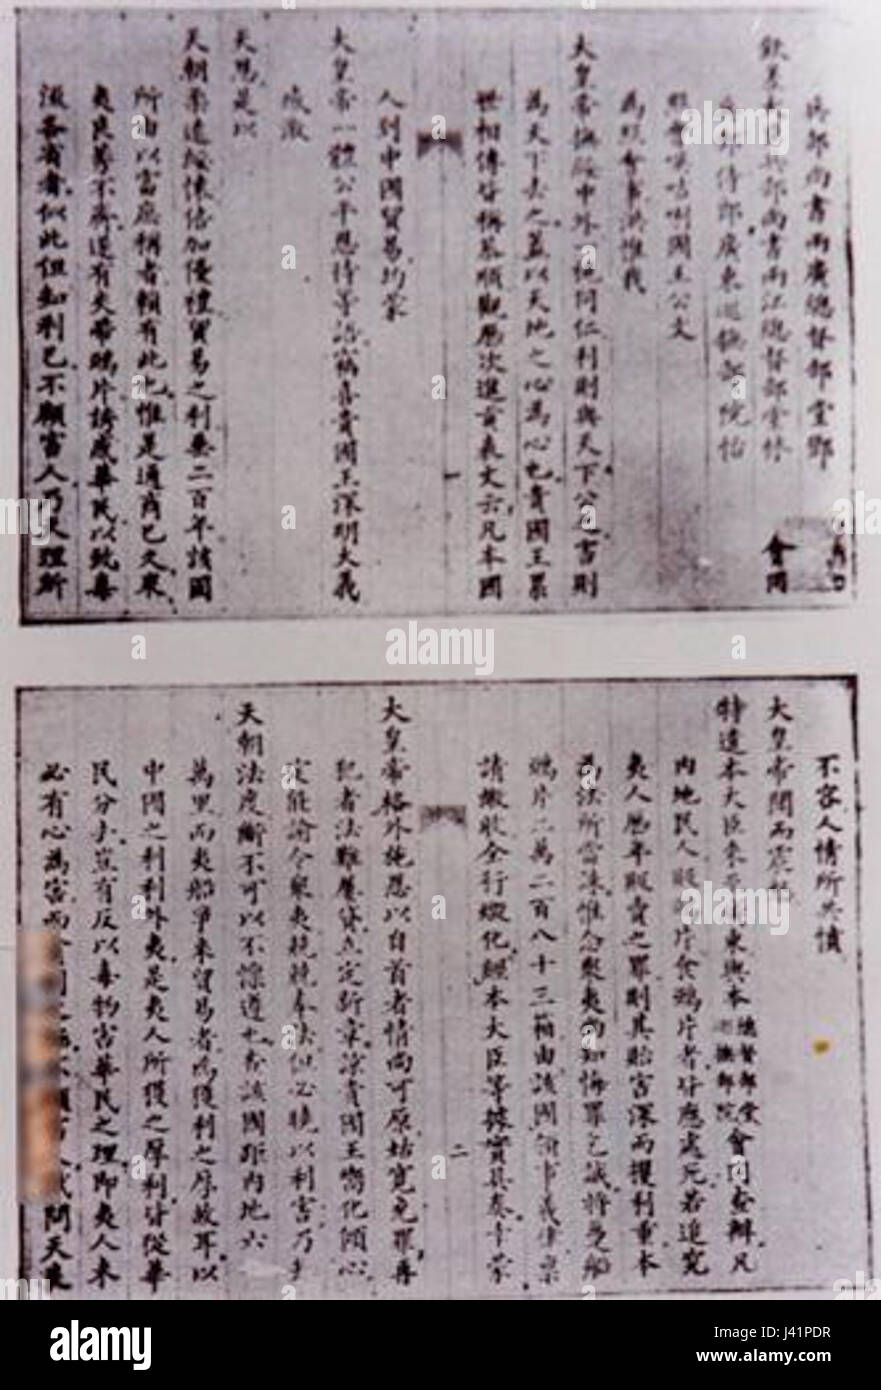 兵部尚書兩廣總督部堂鄧
欽差大臣兵部尚書兩江總督部堂林 會同
部侍郎廣東巡撫部院怡
照會咭唎國王公文
為照會事洪惟我
大皇帝撫綏中外一視同仁利則與天下公之害則
為天下去之蓋以天地之心為心也貴國王累
世相傳皆稱恭順觀歷次進貢表文云凡本國
人到中國貿易均蒙
一
大皇帝一體公平恩待等語竊喜貴國王深明大義
感激
天恩是以
天朝柔遠綏懷倍加優禮貿易之利垂二百年該國
所由以富庶稱者賴有此也惟是通商已久眾
夷良莠不齊遂有夾帶鴉片誘惑華民以致毒
流各省者似此但知利己不顧害人乃天理所
不容人情所共憤
大皇帝聞而震怒
特遣本大臣來至廣東與本總督部堂巡撫部院會同查辦凡
內地民人販鴉片食鴉片者皆應處死若追究
夷人歷年販賣之罪則其貽害深而攫利重本
為法所當誅惟念眾夷尚知悔罪乞誠將躉船
鴉片二萬二百八十三箱由該國領事義律稟
請繳收全行燬化經本大臣等據實具奏幸蒙
二
大皇帝格外施恩以自首者情尚可原姑寬免罪再
犯者法難屢貸立定新章諒貴國王嚮化傾心
定能諭令眾夷兢兢奉法但必曉以利害乃知
天朝法度斷不可以不懍遵也查該國距內地六七
萬里而夷船爭來貿易者為獲利之厚故耳以
中國之利利外夷是夷人所獲之厚利皆從華
民分去豈有反以毒物害華民之理即夷人未
必有心為害而貪利之極不顧害人試問天良
alamy
Image ID: J41PDR
www.alamy.com